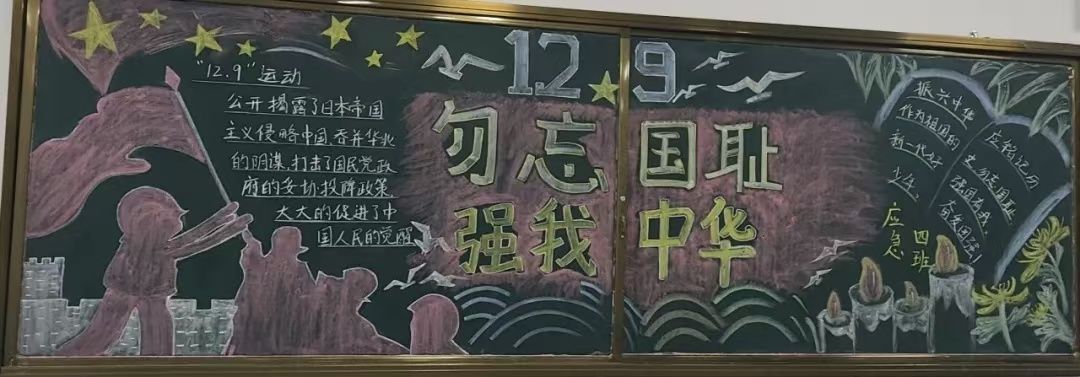 12 9
"12.9"运动
公开揭露了日本帝国
主义侵略中国,吞并华北
的阴谋,打击了国民党政
府的妥协投降政策,
大大的促进了中
国人民的觉醒
勿忘国耻
强我中华
振兴中华
作为祖国的
新一代好
少年
应铭记历
史勿忘国耻
强国有我,
奋发图强!
应急
四班